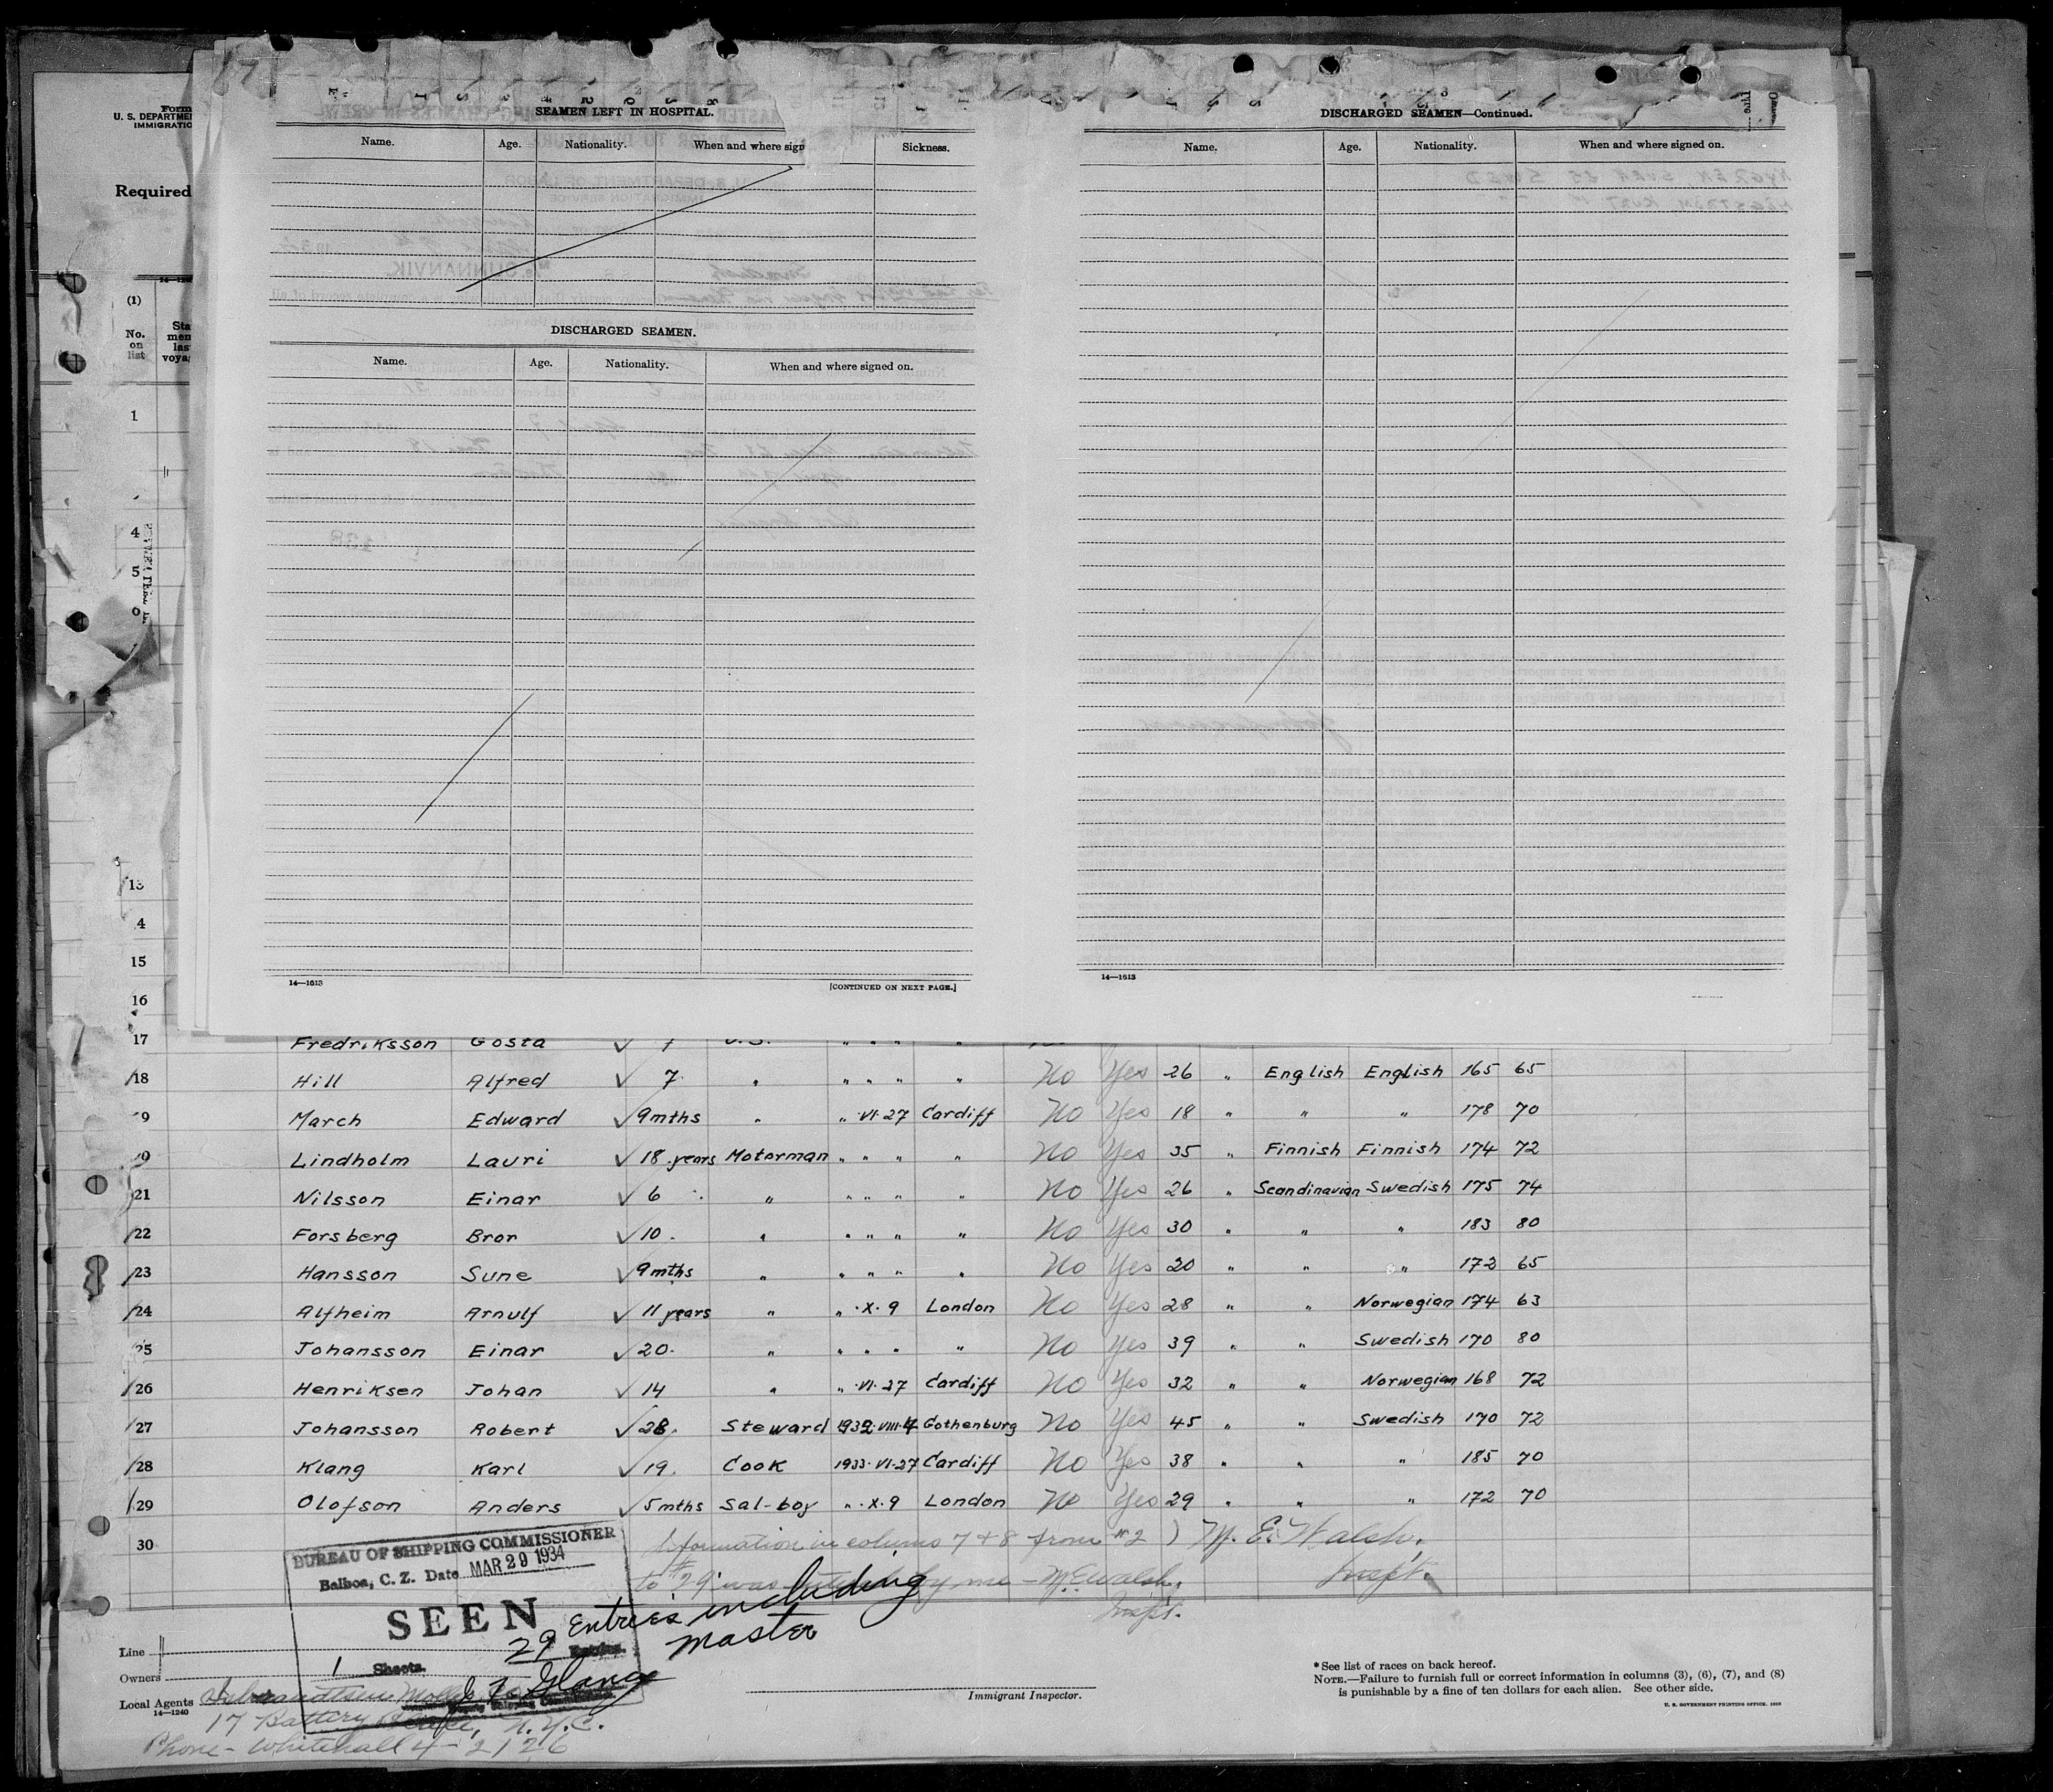 SEAMEN LEFT IN HOSPITAL.
Name. Age. Nationality. When and where sig Sickness.
DISCHARGED SEAMEN.
Name. Age. Nationality. When and where signed on.
14—1613 [CONTINUED ON NEXT PAGE.]
DISCHARGED SEAMEN—Continued.
Name. Age. Nationality. When and where signed on.
14—1613
Form
U. S. DEPARTME
IMMIGRATIO
Required
(1)
No. on list
Sta
men
las
voya
1
4
5
13
4
15
16
17 Fredriksson Gosta √ 7 " " " "
18 Hill Alfred √ 7 " " " " " No Yes 26 " English English 165 65
9 March Edward √ 9 mths " " VI·27 Cardiff No Yes 18 " " " 178 70
Lindholm Lauri √ 18 years Motorman " " " " No Yes 35 " Finnish Finnish 174 72
21 Nilsson Einar √ 6 " " " " " " No Yes 26 " Scandinavian Swedish 175 74
22 Forsberg Bror √ 10 " " " " " No Yes 30 " " " 183 80
23 Hansson Sune √ 9 mths " " " " " No Yes 20 " " " 172 65
24 Alfheim Arnulf √ 11 years " " ·X·9 London No Yes 28 " " Norwegian 174 63
25 Johansson Einar √ 20 " " " " " No Yes 39 " " Swedish 170 80
26 Henriksen Johan √ 14 " " ·VI·27 Cardiff No Yes 32 " " Norwegian 168 72
27 Johansson Robert √ 28 Steward 1932·VIII·4 Gothenburg No Yes 45 " " Swedish 170 72
28 Klang Karl √ 19 Cook 1933·VI·27 Cardiff No Yes 38 " " " 185 70
29 Olofson Anders √ 5 mths Sal-boy " ·X·9 London No Yes 29 " " " 172 70
30 Information in colums 7 & 8 from #2 ) M. E. Walsh,
to #29 was by me - M. E. Walsh, Inspt.
Inspt.
BUREAU OF SHIPPING COMMISSIONER
Balboa, C. Z. Date MAR 29 1934
SEEN
29 Entries including
master
1 Sheets.
Line
Owners
Local Agents
14—1240
17 Battery Place, N.Y.C.
Phone - Whitehall 4-2126
Immigrant Inspector.
* See list of races on back hereof.
NOTE.—Failure to furnish full or correct information in columns (3), (6), (7), and (8)
is punishable by a fine of ten dollars for each alien. See other side.
U. S. GOVERNMENT PRINTING OFFICE